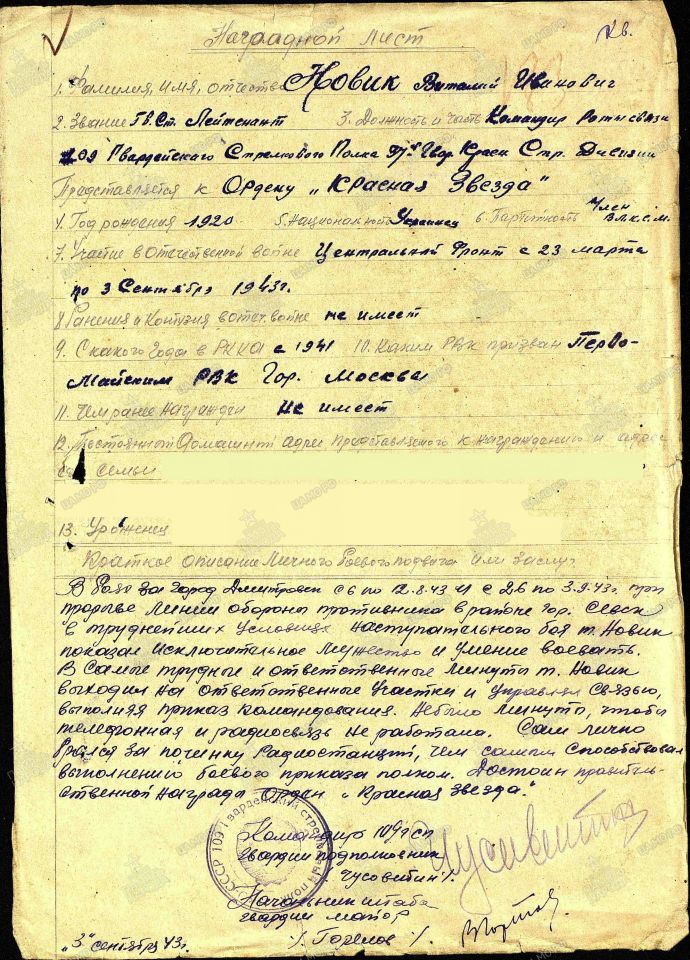 Наградной лист
1. Фамилия, имя, отчество Новик Виталий Иванович
2. Звание Гв. Ст. Лейтенант 3. Должность и часть Командир Роты связи
109 Гвардейского Стрелкового Полка 37й Гвар. Красн Стр. Дивизии
Представляется к Ордену „Красная Звезда"
4. Год рождения 1920 5. Национальность Украинец 6. Партийность Член В.Л.К.С.М.
7. Участие в отечественной войне Центральный Фронт с 23 марта
по 3 Сентября 1943г.
8. Ранения и контузия в отеч. войне не имеет
9. С какого года в РККА с 1941 10. Каким РВК призван Перво-
майским РВК Гор. Москвы
11. Чем ранее награжден Не имеет
12. Постоянный домашний адрес представляемого к награждению и адрес
семьи
13. Уроженец
Краткое описание личного боевого подвига или заслуг
В боях за город Дмитровск с 6 по 12.8.43 и с 26 по 3.9.43г. при
прорыве линии обороны противника в районе гор. Севск
в труднейших условиях наступательного боя т. Новик
показал исключительное мужество и умение воевать.
В самые трудные и ответственные минуты т. Новик
выходил на ответственные участки и управлял связью,
выполняя приказ командования. Небыло минуты, чтобы
телефонная и радиосвязь не работала. Сам лично
брался за починку радиостанций, чем самым способствовал
выполнению боевого приказа полком. Достоин правитель-
ственной награды Орден „Красная Звезда".
Командир 109 гсп
гвардии подполковник
/ Чусовитин /.
Начальник штаба
гвардии майор
/. Горелов /.
„3" сентября 43г.
СССР 109 гвардейский стрелковый полк
ЦАМО РФ